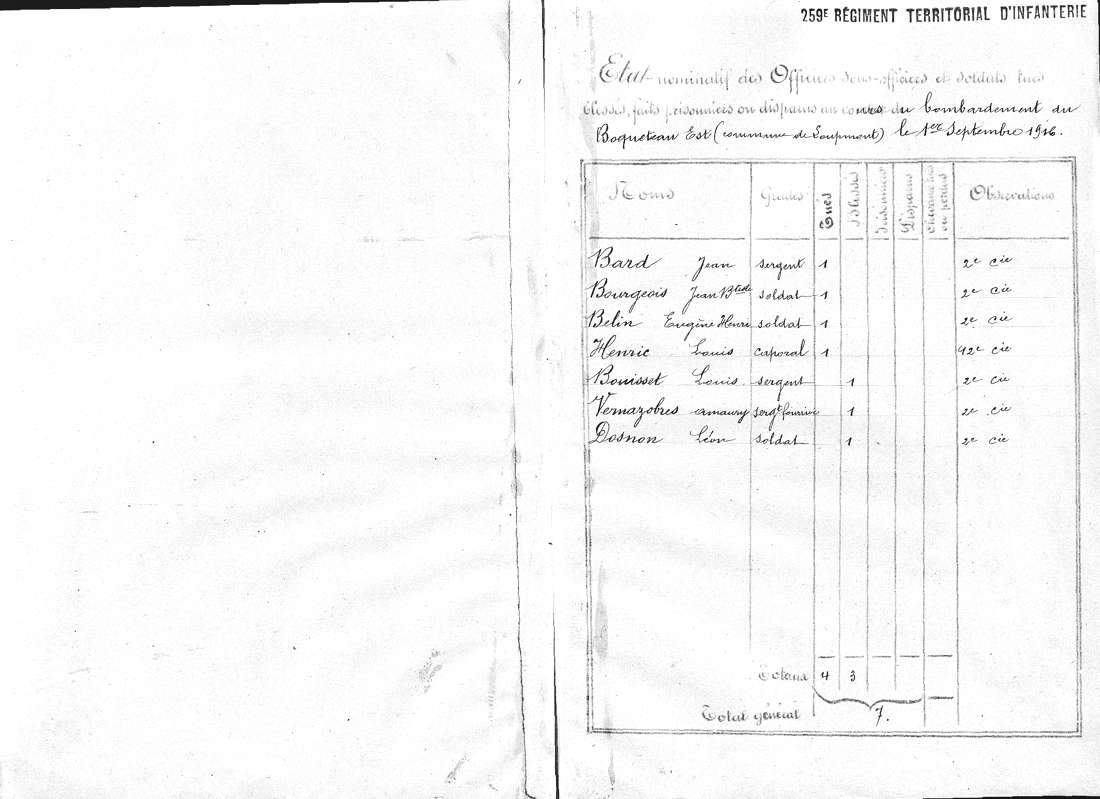 259E RÉGIMENT TERRITORIAL D'INFANTERIE
Etat nominatif des Officiers sous-officiers et soldats tués
blessés, faits prisonniers ou disparus au cours du bombardement du
Boqueteau Est (commune de Loupmont) le 1er Septembre 1916.
Noms Grades Tués Blessés Prisonniers Disparus Chevaux tués ou perdus Observations
Bard Jean sergent 1 2e Cie
Bourgeois Jean Btiste soldat 1 2e Cie
Belin Eugène Henri soldat 1 2e Cie
Henric Louis caporal 1 42e Cie
Bouisset Louis sergent 1 2e Cie
Vernazobres amaury sergt fourrier 1 2e Cie
Dosnon Léon soldat 1 2e Cie
Totaux 4 3
Total général 7.